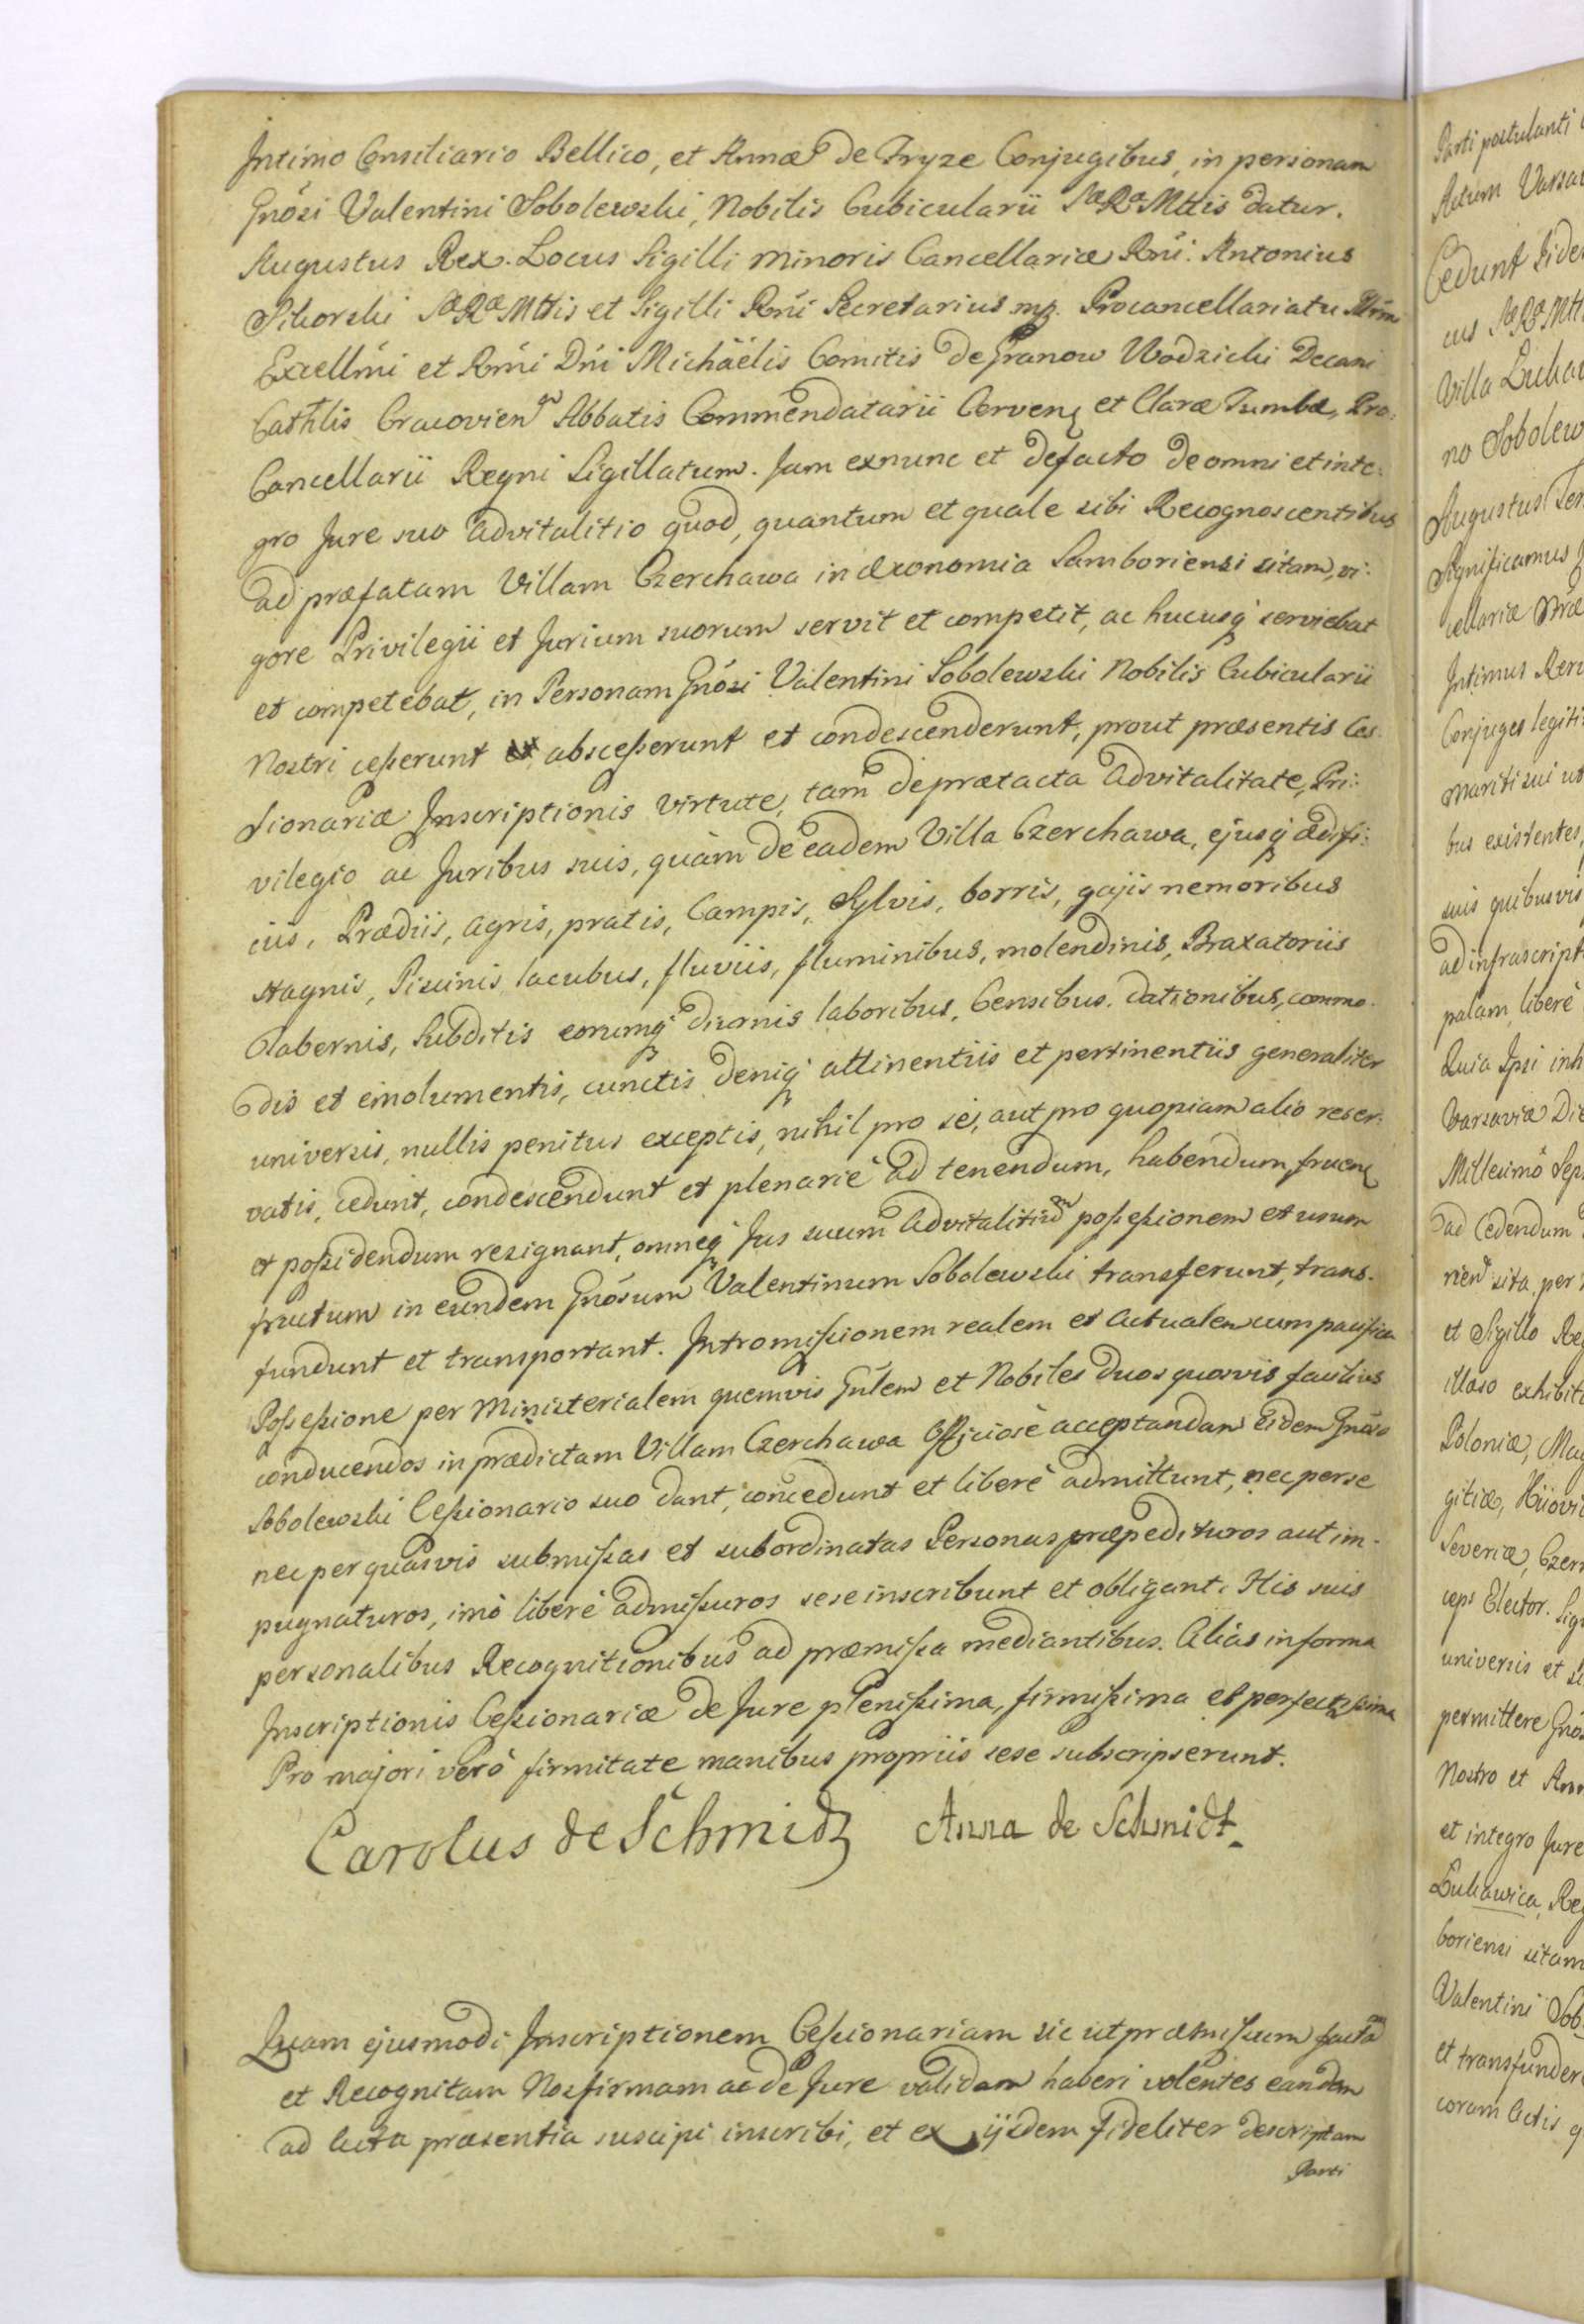 Intimo Consiliario Bellico, et Annæ de Fryze Conjugibus, in personam
Gnősi Valentini Sobolewski, Nobilis Cubicularii SæRæMttis datur.
Augustus Rex. Locus Sigilli minoris Cancellariæ Rni: Antonius
Sikorski SæRæMttis et Sigilli Rni Secretarius mp. Procancellariatu Illrmi
Excellmi et Rmi Dni Michaëlis Comitis de Granow Wodzicki Decani
Cathlis Cracovien Abbatis Commendatarii Cerven et Claræ Tumbæ, Pro:
Cancellarii Regni Sigillatum. Jam exnunc et defacto de omni et inte:
gro Jure suo advitalitio quod, quantum et quale sibi Recognoscentibus
ad præfatam Villam Czerchawa in œconomia Samboriensi sitam, vi:
gore Privilegii et Jurium suorum servit et competit, ac hucusq serviebat
et competebat, in Personam Gnősi Valentini Sobolewski Nobilis Cubicularii
Nostri cesserunt et abscesserunt et condescenderunt, prout præsentis Ces
sionariæ Inscriptionis virtute, tam de prætacta advitalitate, Pri:
vilegio ac Juribus suis, quàm de eadem Villa Czerchawa, ejusq ædifi:
ciis, Prædiis, agris, pratis, Campis, Sylvis, borris, gajis nemoribus
stagnis, Piscinis, lacubus, fluviis, fluminibus, molendinis, Braxatoriis
Tabernis, Subditis eorumq diurnis laboribus, Censibus, dationibus, commo
dis et emolumentis, cunctis deniq attinentiis et pertinentiis generaliter
universis, nullis penitus exceptis, nihil pro se, aut pro quopiam alio reser:
vatis, cedunt, condescendunt et plenariè ad tenendum, habendum fruen
et possidendum resignant, omneq Jus suum advitalitium possessionem et usum
fructum in eundem Gnősum Valentinum Sobolewski transferunt, trans.
fundunt et transportant. Intromissionem realem et actualem cum pacifica
Possessione per Ministerialem quemvis Gnlem et Nobiles duos quosvis facilius
conducendos in prædictam Villam Czerchawa Officiosè acceptandam Eidem Gnőso
Sobolewski Cessionario suo dant, concedunt et liberè admittunt, nec per se
nec per quasvis submissas et subordinatas Personas præpedituros aut im-
pugnaturos, imò liberè admissuros sese inscribunt et obligant. His suis
personalibus Recognitionibus ad præmissa mediantibus. Aliàs in forma
Inscriptionis Cessionariæ de Jure plenissima, firmissima et perfectissima
Pro majori verò firmitate manibus propriis sese subscripserunt.
Carolus de Schmidt Anna de Schmidt
Quam ejusmodi Inscriptionem Cessionariam sic ut præmissum facta
et Recognitam Nos firmam ac de Jure validam haberi volentes eandem
ad Acta præsentia suscipi inscribi, et ex ijsdem fideliter descriptam
Parti
Parti postulanti
Actum Varsa
Cedunt Eide
cus SæRæMtt
Villa Lukaw
no Sobolew
Augustus Ter
Significamus
cellariæ Nræ
Intimus Rer
Conjuges legiti
mariti sui ut
bus existentes,
suis quibusvis
ad infrascript
palam, liberè
Quia Ipsi inh
Varsaviæ Die
Millesimô Sep
ad Cedendum
rien sita per
et Sigillo Reg
illæso exhibit
Poloniæ, Mag
gitiæ, Kijovi
Severiæ, Czern
ceps Elector. Sig
universis et si
permittere Gnős
Nostro et Ann
et integro Jure
Lukawica, Reg
boriensi sitam
Valentini Sob
et transfunder
coram Actis q